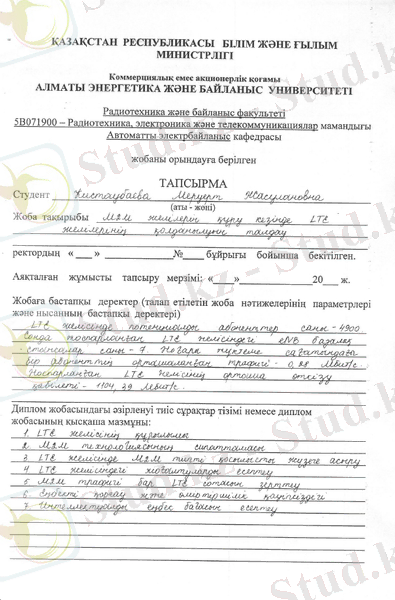 ҚАЗАҚСТАН РЕСПУБЛИКАСЫ БІЛІМ ЖӘНЕ ҒЫЛЫМ
МИНИСТРЛІГІ
Коммерциялық емес акционерлік қоғамы
АЛМАТЫ ЭНЕРГЕТИКА ЖӘНЕ БАЙЛАНЫС УНИВЕРСИТЕТІ
Радиотехника және байланыс факультеті
5B071900 – Радиотехника, электроника және телекоммуникациялар мамандығы
Автоматты электрбайланыс кафедрасы
жобаны орындауға берілген
ТАПСЫРМА
Студент Кистаубаева Меруерт Жасулановна
(аты - жөні)
Жоба тақырыбы M2M желілерін құру кезінде LTE
желілерінің қолданылуын талдау
ректордың «___» ________ №___ бұйрығы бойынша бекітілген.
Аяқталған жұмысты тапсыру мерзімі: «___»________20___ ж.
Жобаға бастапқы деректер (талап етілетін жоба нәтижелерінің параметрлері
және нысанның бастапқы деректері)
LTE желісінде потенциалды абонентттер саны - 4900
Сонда жоспарланған LTE желісіндегі eNB базалық
станциялар саны - 7. Жоғары жүктеме сағатындағы
бір абоненттің орташаланған трафигі -
Жоспарланған LTE желісінің орташа өткізу
қабілеті - 1104,29 Мбит/с.
Диплом жобасындағы әзірленуі тиіс сұрақтар тізімі немесе диплом
жобасының қысқаша мазмұны:
1 LTE желісінің құрылымы
2 M2M технологиясының сипаттамасы
3 LTE желісінде M2M типті қосылысты жүзеге асыру
4 LTE желісіндегі жоғалтуларды есептеу
5 M2M трафигі бар LTE сотасын зерттеу
6 Еңбекті қорғау және өміртіршілік қауіпсіздігі
7 Интеллектуалды еңбек бағасын есептеу
Stud.kz
Stud.kz - Stud.kz
Stud.kz